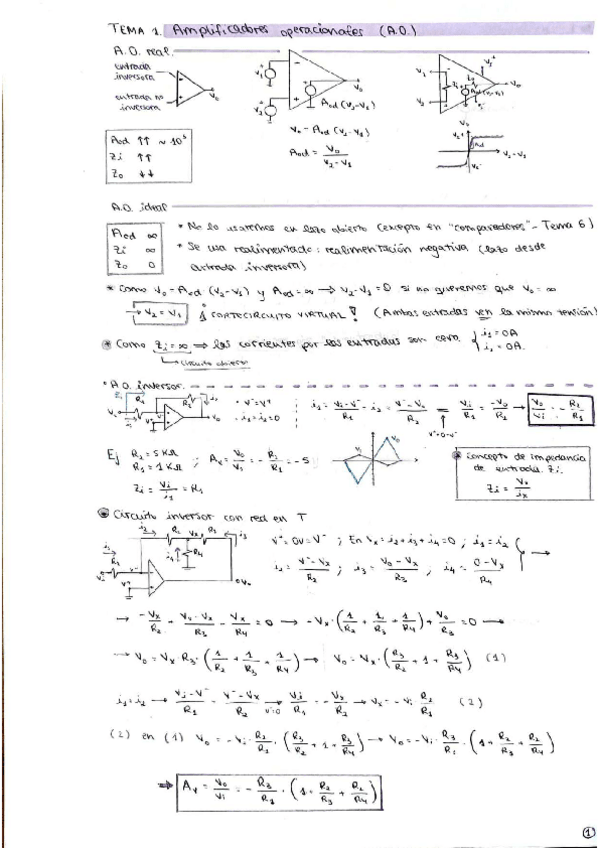 TEMA 1. Amplificadores operacionales (A.O.)
A.O. real.
entrada inversora
entrada no inversora
V₀
V₁
V₂
V₀
Aod (V₂-V₁)
V₁
V₂
V₀
V₀
V₂-V₁
Aod ↑↑ ~ 10⁵
Zi ↑↑
Z₀ ↓↓
V₀ = Aod (V₂-V₁)
Aod = V₀ / (V₂-V₁)
A.O. ideal
Aod ∞
Zi ∞
Z₀ 0
* No lo usaremos en lazo abierto (excepto en "comparadores" - Tema 6)
* Se usa realimentado: realimentación negativa (lazo desde
entrada inversora)
* Como V₀ = Aod (V₂-V₁) y Aod = ∞ → V₂-V₁ = 0 si no queremos que V₀ = ∞
→ V₂ = V₁ ¡CORTOCIRCUITO VIRTUAL! (Ambas entradas ven la misma tensión)
* Como Zi = ∞ ⇒ las corrientes por las entradas son cero.
circuito abierto
* A.O. inversor.
· V⁻=V⁺
Vi/R₁ = -V₀/R₂ → V₀/Vi = -R₂/R₁
Ej R₂ = 5 KΩ
R₁ = 1 KΩ ; Av = V₀/Vi = -R₂/R₁ = -5
Zi = Vi/i₁ = R₁
* concepto de impedancia
de entrada. Zi.
* Circuito inversor con red en T
V⁺ = 0V = V⁻ ; En Vx = i₂+i₃+i₄=0 ; i₁ = i₂
i₂ = (V⁻-Vx)/R₂ ; i₃ = (V₀-Vx)/R₃ ; i₄ = (0-Vx)/R₄
→ -Vx/R₂ + (V₀-Vx)/R₃ - Vx/R₄ = 0 → -Vx·(1/R₂ + 1/R₃ + 1/R₄) + V₀/R₃ = 0 →
→ V₀ = Vx R₃·(1/R₂ + 1/R₃ + 1/R₄) → V₀ = Vx·(R₃/R₂ + 1 + R₃/R₄) (1)
i₁ = i₂ → (Vi-V⁻)/R₁ = (V⁻-Vx)/R₂ → Vi/R₁ = -Vx/R₂ → Vx = -Vi R₂/R₁ (2)
(2) en (1) V₀ = -Vi·R₂/R₁·(R₃/R₂ + 1 + R₃/R₄) → V₀ = -Vi·R₃/R₁·(1 + R₂/R₃ + R₂/R₄)
⇒ Av = V₀/Vi = -R₃/R₁·(1 + R₂/R₃ + R₂/R₄)
1